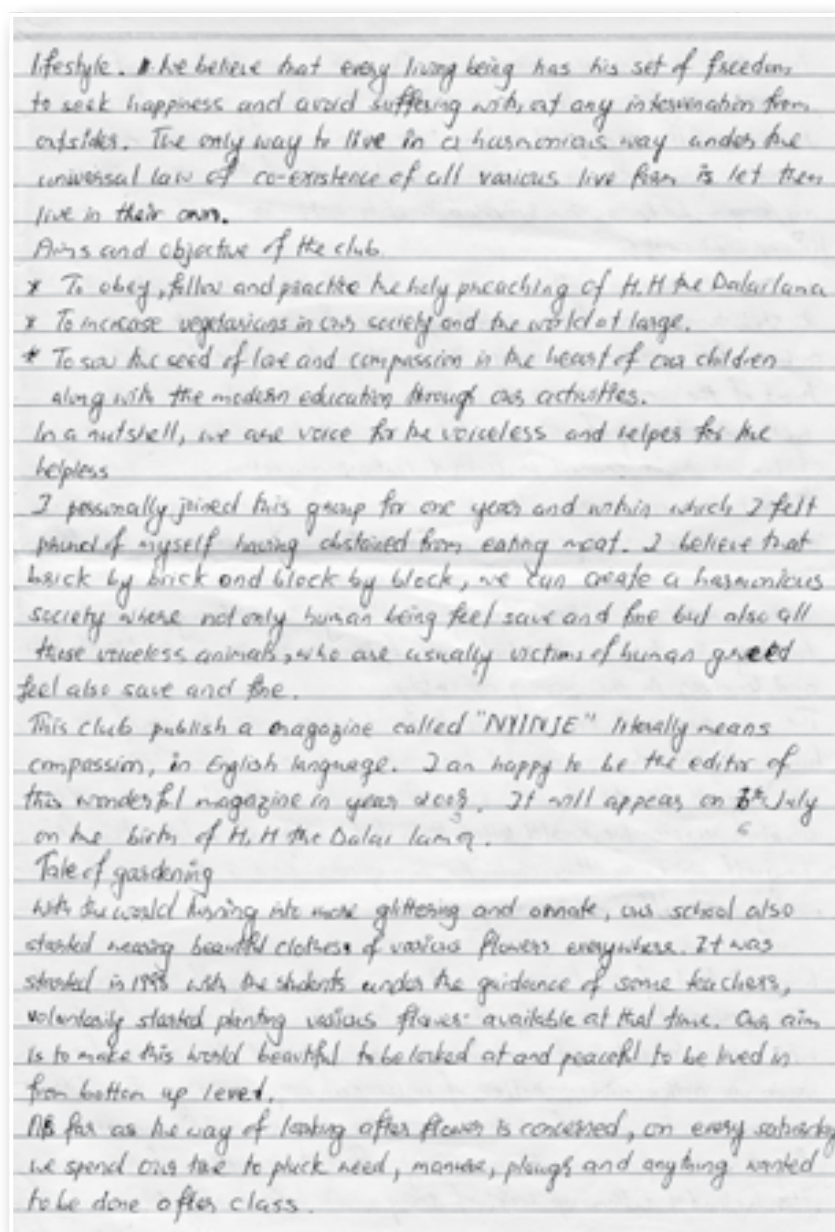 lifestyle. We believe that every living being has his set of freedom
to seek happiness and avoid suffering without any intervination from
outsides. The only way to live in a harmonious way under the
universal law of co-existence of all various live form is let them
live in their own.
Aims and objective of the club.
* To obey, follow and practise the holy preaching of H.H the Dalai lama
* To increase vegetarians in our society and the world at large.
* To sow the seed of love and compassion in the heart of our children
along with the modern education through our activities.
In a nutshell, we are voice for the voiceless and helpes for the
helpless
I personally joined this group for one year and within which I felt
proud of myself having abstained from eating meat. I believe that
brick by brick and block by block, we can create a harmonious
society where not only human being feel save and fine but also all
those voiceless animals, who are usually victims of human greed
feel also save and fine.
This club publish a magazine called "NYINJE" literally means
compassion, in English language. I am happy to be the editor of
this wonderful magazine in year 2008. It will appear on 6th July
on the birth of H.H the Dalai lama.
Tale of gardening
With the world turning into more glittering and ornate, our school also
started wearing beautiful clothes of various flowers everywhere. It was
started in 1998 with the students under the guidance of some teachers,
voluntarily started planting various flower available at that time. Our aim
is to make this world beautiful to be looked at and peaceful to be lived in
from bottom up level.
As far as the way of looking after flower is concerned, on every saturday
we spend our time to pluck weed, manure, plough and anything wanted
to be done after class.